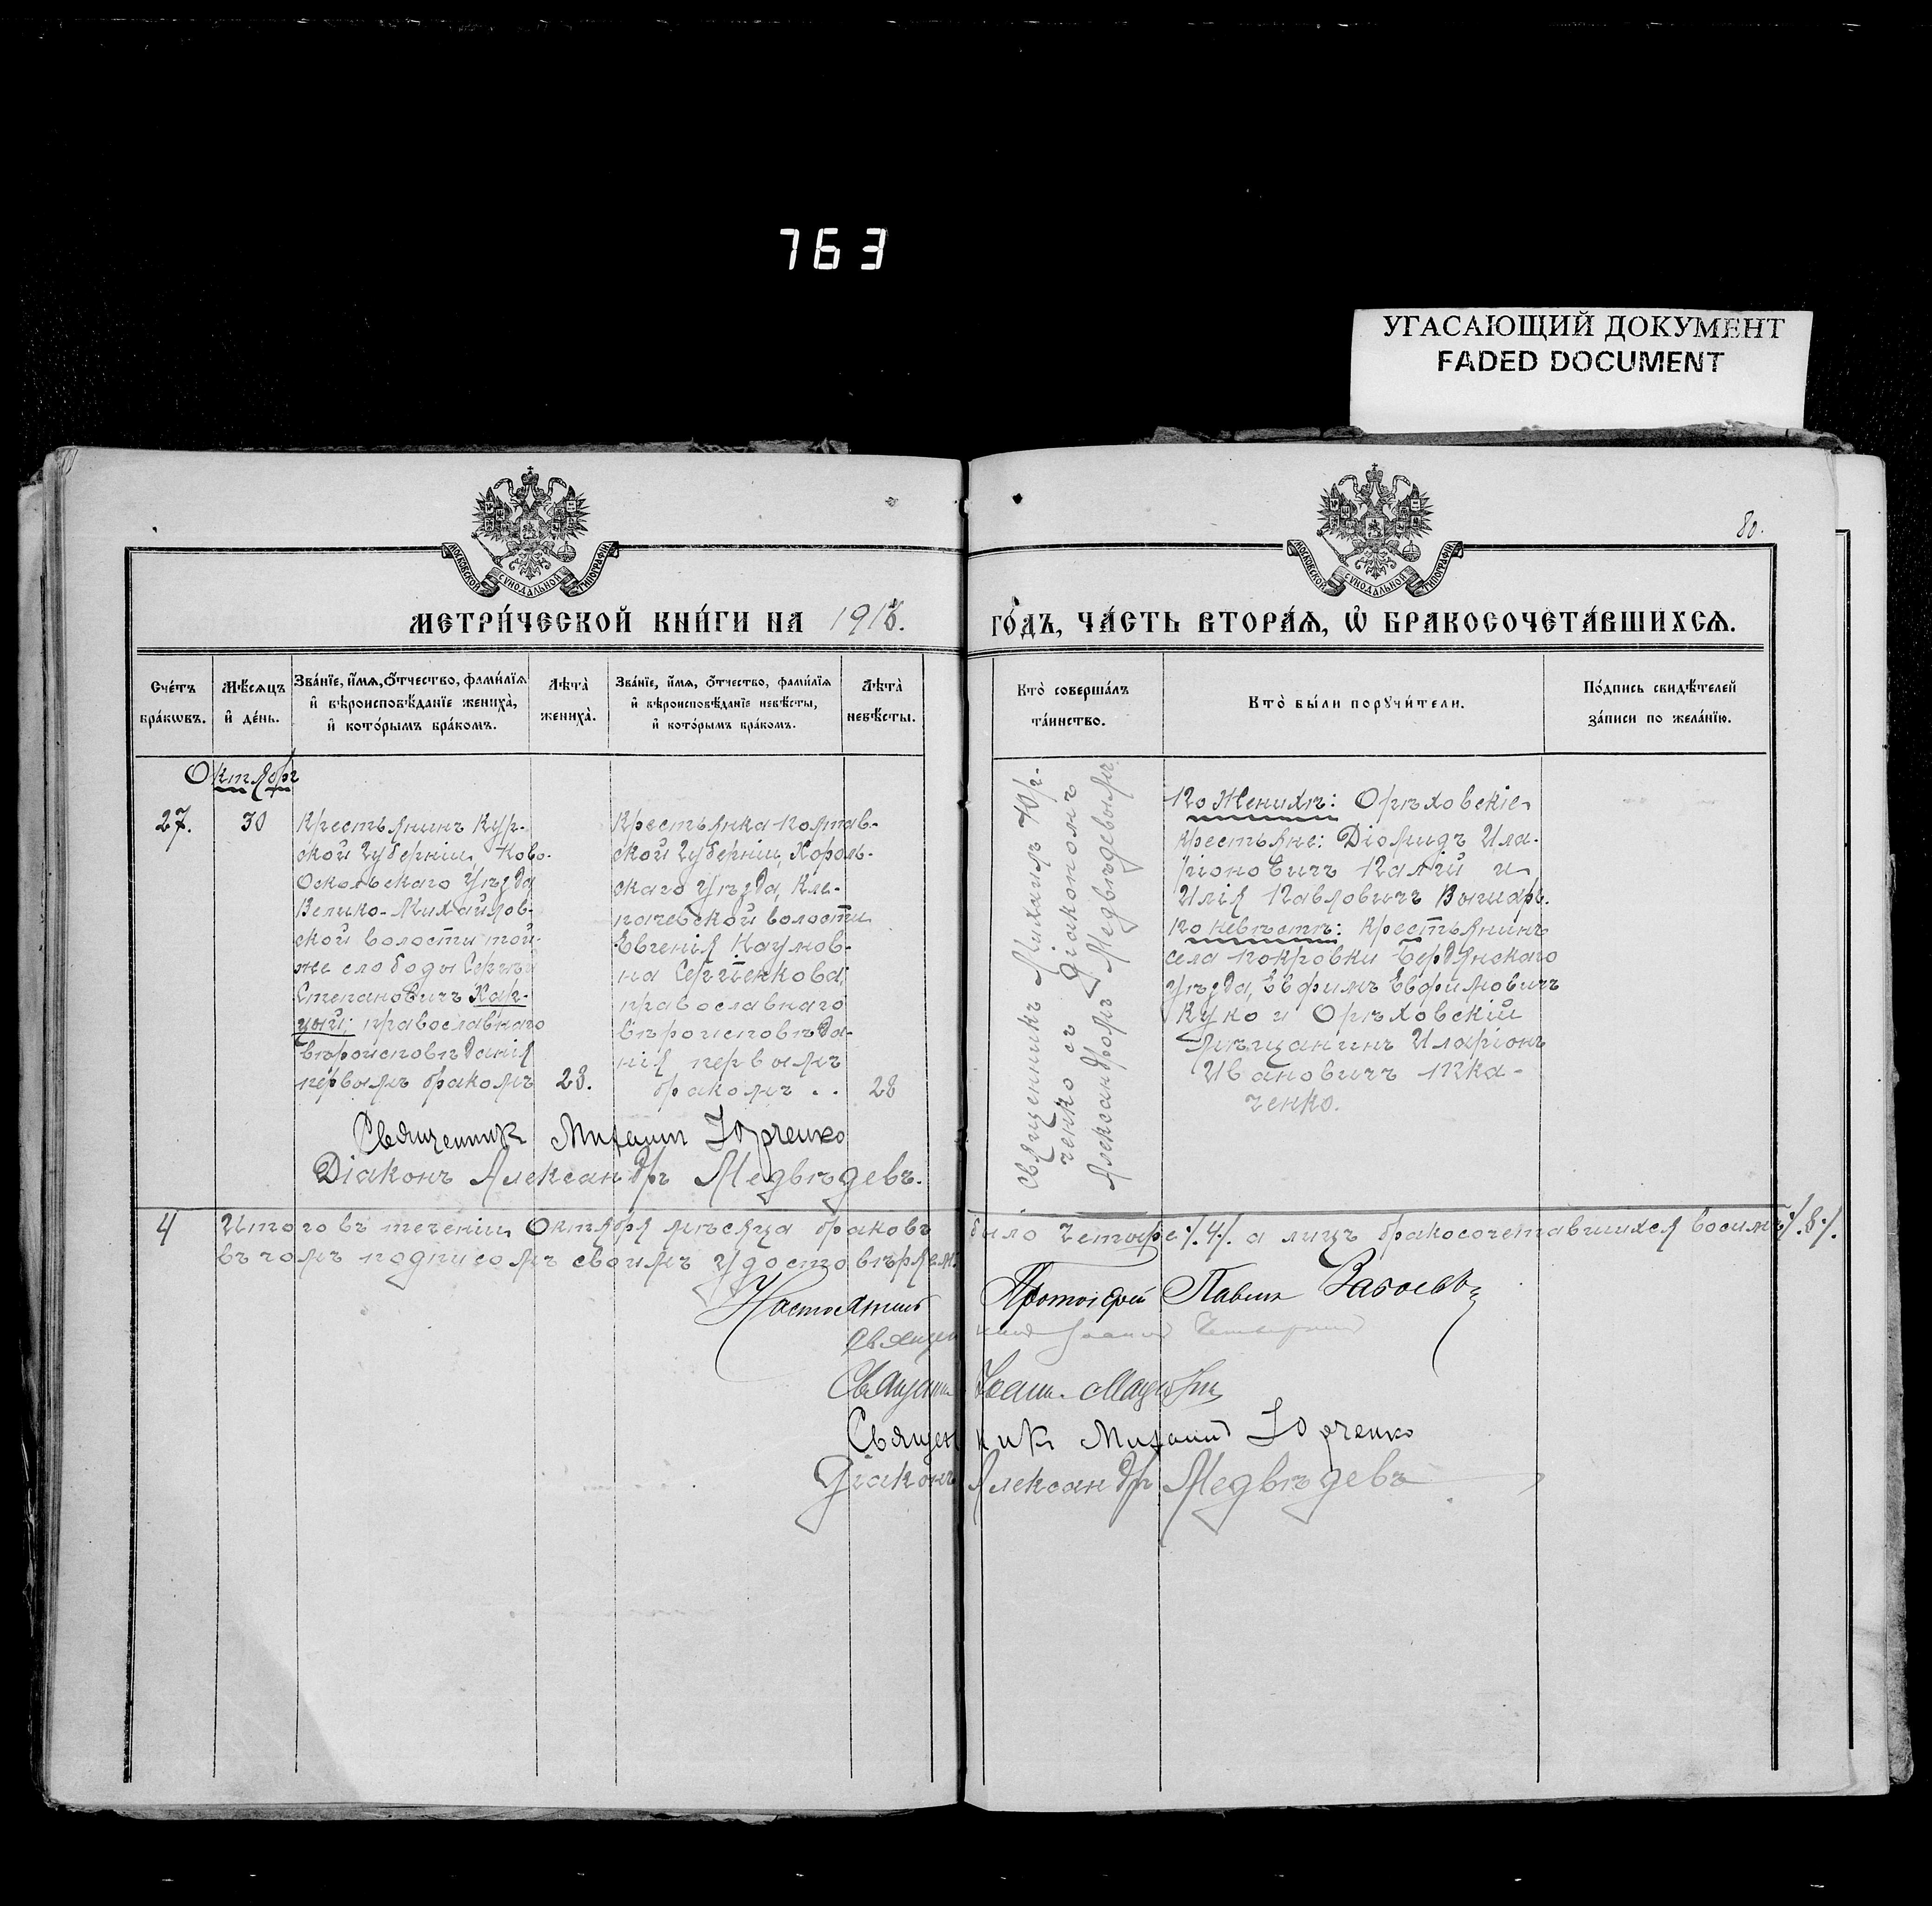 763
УГАСАЮЩИЙ ДОКУМЕНТ
FADED DOCUMENT
МОСКОВСКОЙ СѴНОДАЛЬНОЙ ТИПОГРАФІИ
МОСКОВСКОЙ СѴНОДАЛЬНОЙ ТИПОГРАФІИ
80.
МЕТРИ́ЧЕСКОЙ КНИ́ГИ НА 1918.
ГО́ДЪ, ЧА́СТЬ ВТОРА́Я, Ѡ БРАКОСОЧЕТА́ВШИХСЯ.
Сче́тъ
бра́кѡвъ.
Мѣ́сяцъ
и҆ де́нь.
Зва́нїе, и҆́мя, ѻ҆́тчество, фами́лїя
и҆ вѣроисповѣ́данїе жениха̀,
и҆ кото́рымъ бра́комъ.
Лѣта̀
жениха̀.
Зва́нїе, и҆́мя, ѻ҆́тчество, фами́лїя
и҆ вѣроисповѣ́данїе невѣ́сты,
и҆ кото́рымъ бра́комъ.
Лѣта̀
невѣ́сты.
Кто̀ соверша́лъ
та́инство.
Кто̀ бы́ли порꙋчи́тели.
По́дпись свидѣ́телей
за́писи по жела́нїю.
Октябрь
27.
30
Крестьянинъ Кур-
ской губерніи, Ново-
Оскольскаго уѣзда
Велико-Михайлов-
ской волости той-
же слободы Сергѣй
Степановичъ Кар-
цый; православнаго
вѣроисповѣданія
первымъ бракомъ
28.
Крестьянка Полтав-
ской губерніи, Хороль-
скаго уѣзда,
волости
Евгенія Наумов-
на Сергіенкова,
православнаго
вѣроисповѣда-
нія первымъ
бракомъ . .
28
Священникъ Михаилъ Юр-
ченко съ Діакономъ
Александромъ Медвѣдевымъ
По Женихѣ: Орѣховскіе
крестьяне: Діомидъ Ила-
ріоновичъ Палій и
Илія Павловичъ Вошарь.
По невѣстѣ: крестьянинъ
села Покровки Бердянскаго
уѣзда, Евфимъ Евфимовичъ
Куко и Орѣховскій
мѣщанинъ Иларіонъ
Ивановичъ Тка-
ченко.
Священникъ Михаилъ Юрченко
Діаконъ Александръ Медвѣдевъ.
4 Итого въ теченіи Октября мѣсяца браковъ было четыре ./.4./. а лицъ бракосочетавшихся восимъ ./.8./.
въ чомъ подписомъ своимъ удостовѣряемъ
Настоятель Протоіерей Павелъ
Священникъ Іоаннъ
Священникъ Іоаннъ
Священникъ Михаилъ Юрченко
Діаконъ Александръ Медвѣдевъ